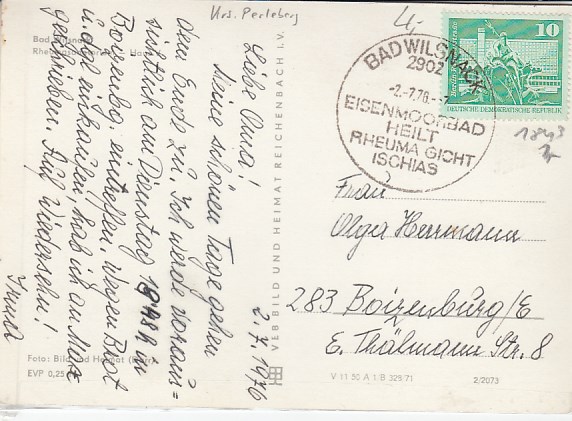 Krs. Perleberg
4,-
Bad Wilsnack
Rheuma
Liebe Oma!
Meine schönen Tage gehen
dem Ende zu. Ich werde voraus=
sichtlich am Dienstag 18.48h in
Boizenburg eintreffen. Wegen Brot
u. dgl. einkaufen, hab ich an Mutti
geschrieben. Auf Wiedersehn!
Irma
2.7.1976
Foto: Bild und Heimat
EVP 0,25
VEB BILD UND HEIMAT REICHENBACH I.V.
BAD WILSNACK
2902
-2.-7.76.-
EISENMOORBAD
HEILT
RHEUMA GICHT
ISCHIAS
10
DEUTSCHE DEMOKRATISCHE REPUBLIK
1843
Frau
Olga Herrmann
283 Boizenburg/E
E. Thälmann Str. 8
V 11 50 A 1/B 329/71
2/2073